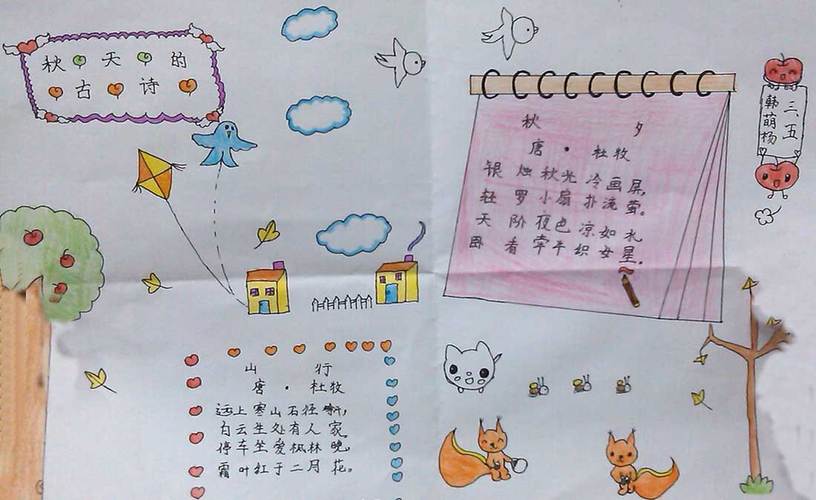 秋天的
古诗
秋 夕
唐·杜牧
银烛秋光冷画屏,
轻罗小扇扑流萤。
天阶夜色凉如
卧看牵牛织女星。
三五
韩萌杨
山 行
唐·杜牧
远上寒山石径
白云生处有人家
停车坐爱枫林晚,
霜叶红于二月花。